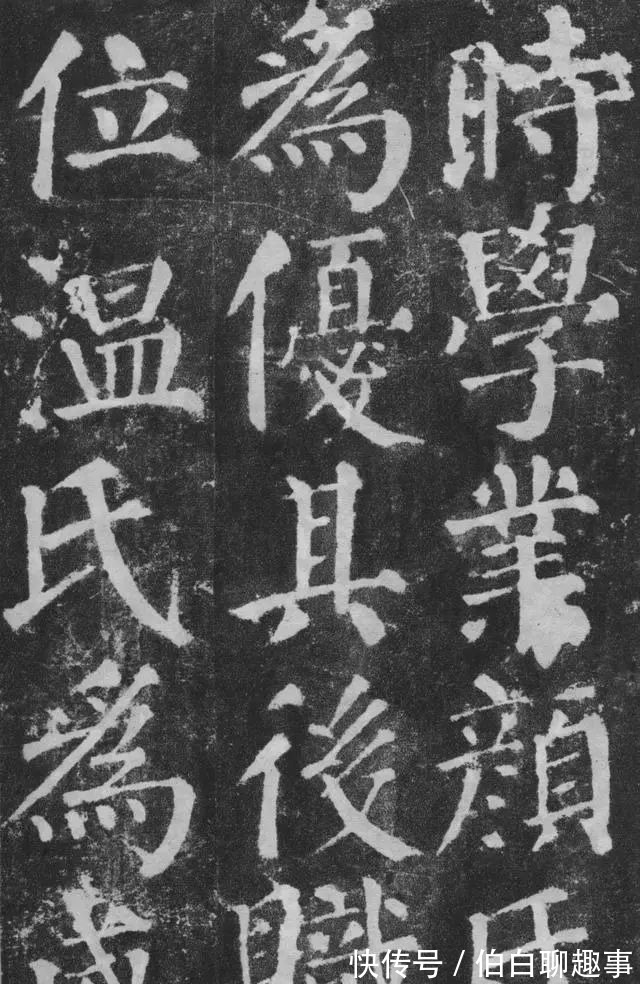 時學業顏氏
為優其後職
位温氏為盛
快传号/伯白聊趣事